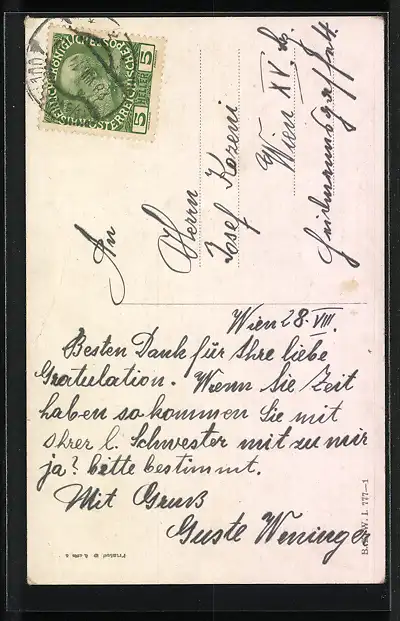 An
Herrn
Josef Kozeni
Wien XV. Bz.
Wien 28. VIII.
Besten Dank für Ihre liebe
Gratulation. Wenn Sie Zeit
haben so kommen Sie mit
Ihrer l. Schwester mit zu mir
ja? bitte bestimmt.
Mit Gruß
Guste Weninger
5 HELLER 5
B.K.W.I. 777-1